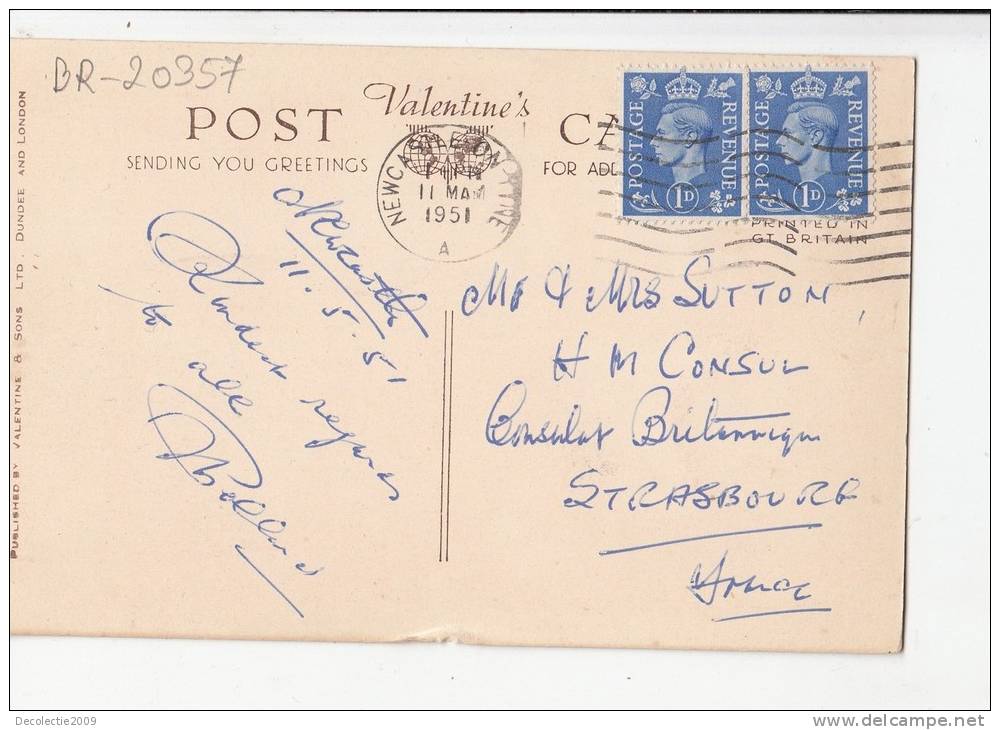 BR-20357
Valentine's
POST CA
SENDING YOU GREETINGS
FOR ADD
POSTAGE REVENUE
1D
POSTAGE REVENUE
1D
NEWCASTLE ON TYNE
11 MAM
1951
A
PRINTED IN
GT. BRITAIN
Newcastle
11.5.51
Kindest regards
to all
Mr & Mrs SUTTON,
H M CONSUL
Consulat Britannique
STRASBOURG
France
PUBLISHED BY VALENTINE & SONS LTD. DUNDEE AND LONDON
Decolectie2009
www.delcampe.net